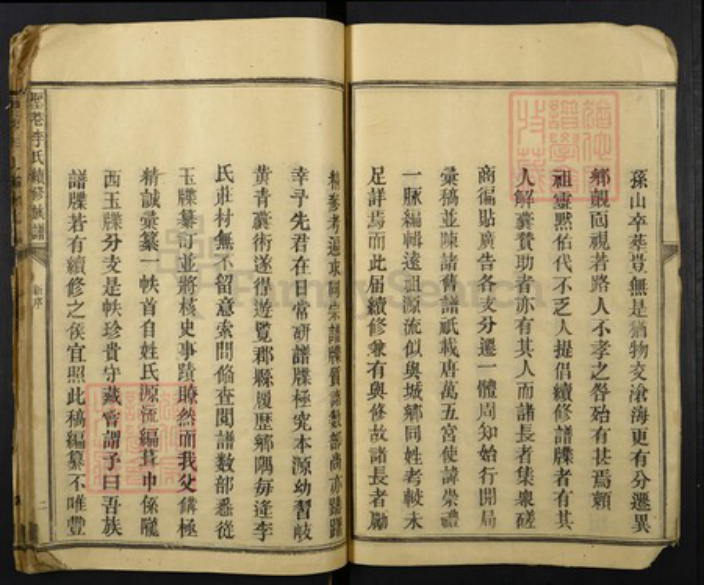 孫山卒葬豈無是猶物交滄海更有分遷異
鄉覿面視若路人不孝之咎殆有甚焉賴
祖靈默佑代不乏人提倡續修譜牒者有其
人解囊贊助者亦有其人而諸長者集衆磋
商徧貼廣告各支分遷一體周知始行開局
彙稿並陳諸舊譜祇載唐萬五宮使諱崇禮
一脈編輯遠祖源流似與城鄉同姓考較未
足詳焉而此届續修兼有與修故諸長者勵
精參考遍求同宗譜牒質諸數部尚亦
幸予先君在日常硏譜牒極究本源幼習岐
黃青囊術遂得遊覽郡縣履歷鄉隅每逢李
氏莊村無不留意索問偹查閱譜數部悉從
玉牒纂訂並將核史事蹟瞭然而我父備極
精誠彙纂一帙首自姓氏源流編葺中係隴
西玉牒分支是帙珍貴守藏嘗謂予曰吾族
譜牒若有續修之後宜照此稿編纂不唯豐
李氏續修族譜
序
二
FamilySearch